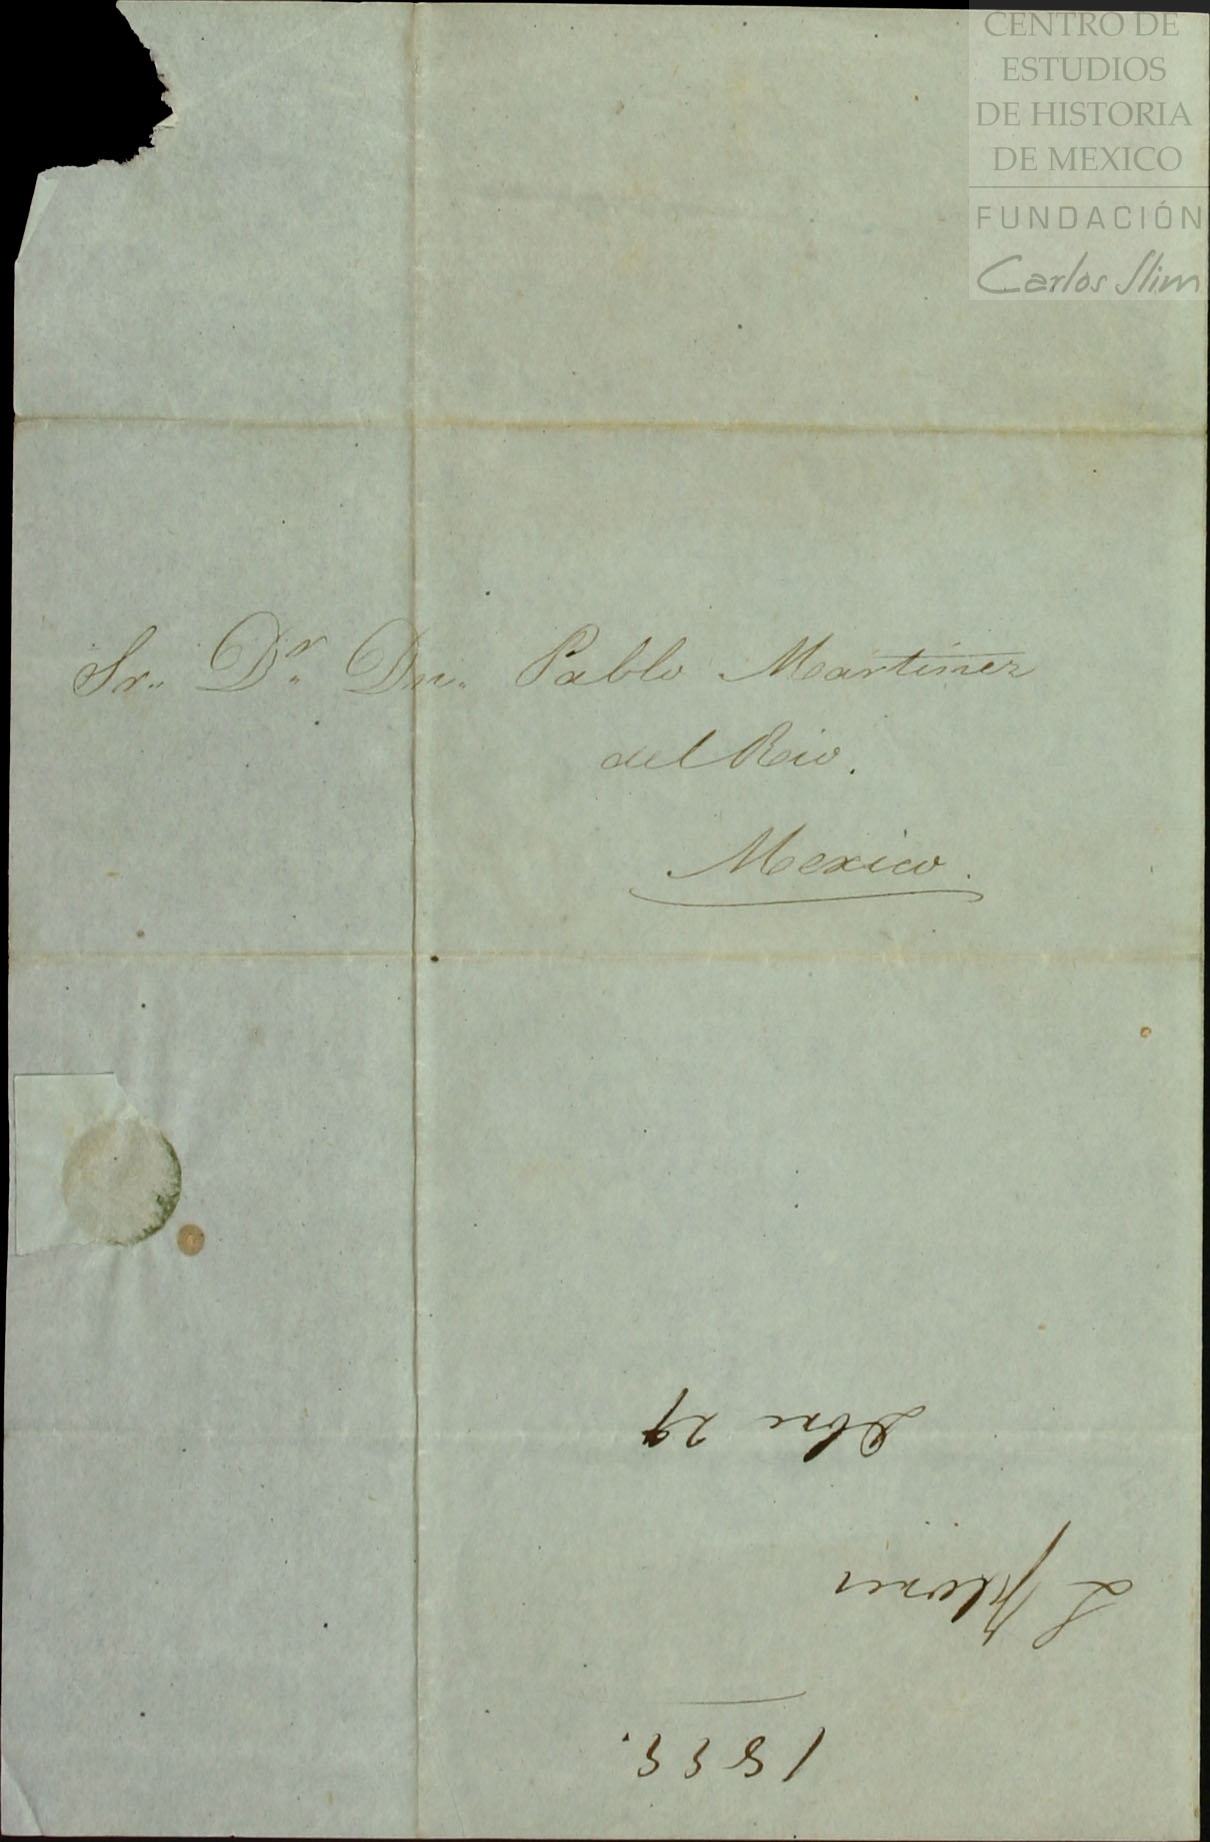 CENTRO DE
ESTUDIOS
DE HISTORIA
DE MEXICO
FUNDACIÓN
Carlos Slim
Sr. Dr. Dn. Pablo Martinez
del Rio.
Mexico.
1855.
L
Dbre 29